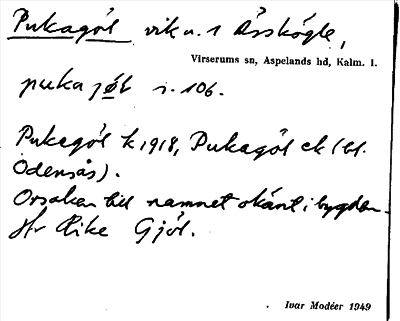 Pukagöl vik u. 1 Åsskögle,
Virserums sn, Aspelands hd, Kalm. l.
puka jøl s. 106.
Pukegöl k 1918, Pukagöl ek (bl.
Ödensås).
Orsaken till namnet okänt i bygden.
Hr Rike Gjöl.
Ivar Modéer 1949